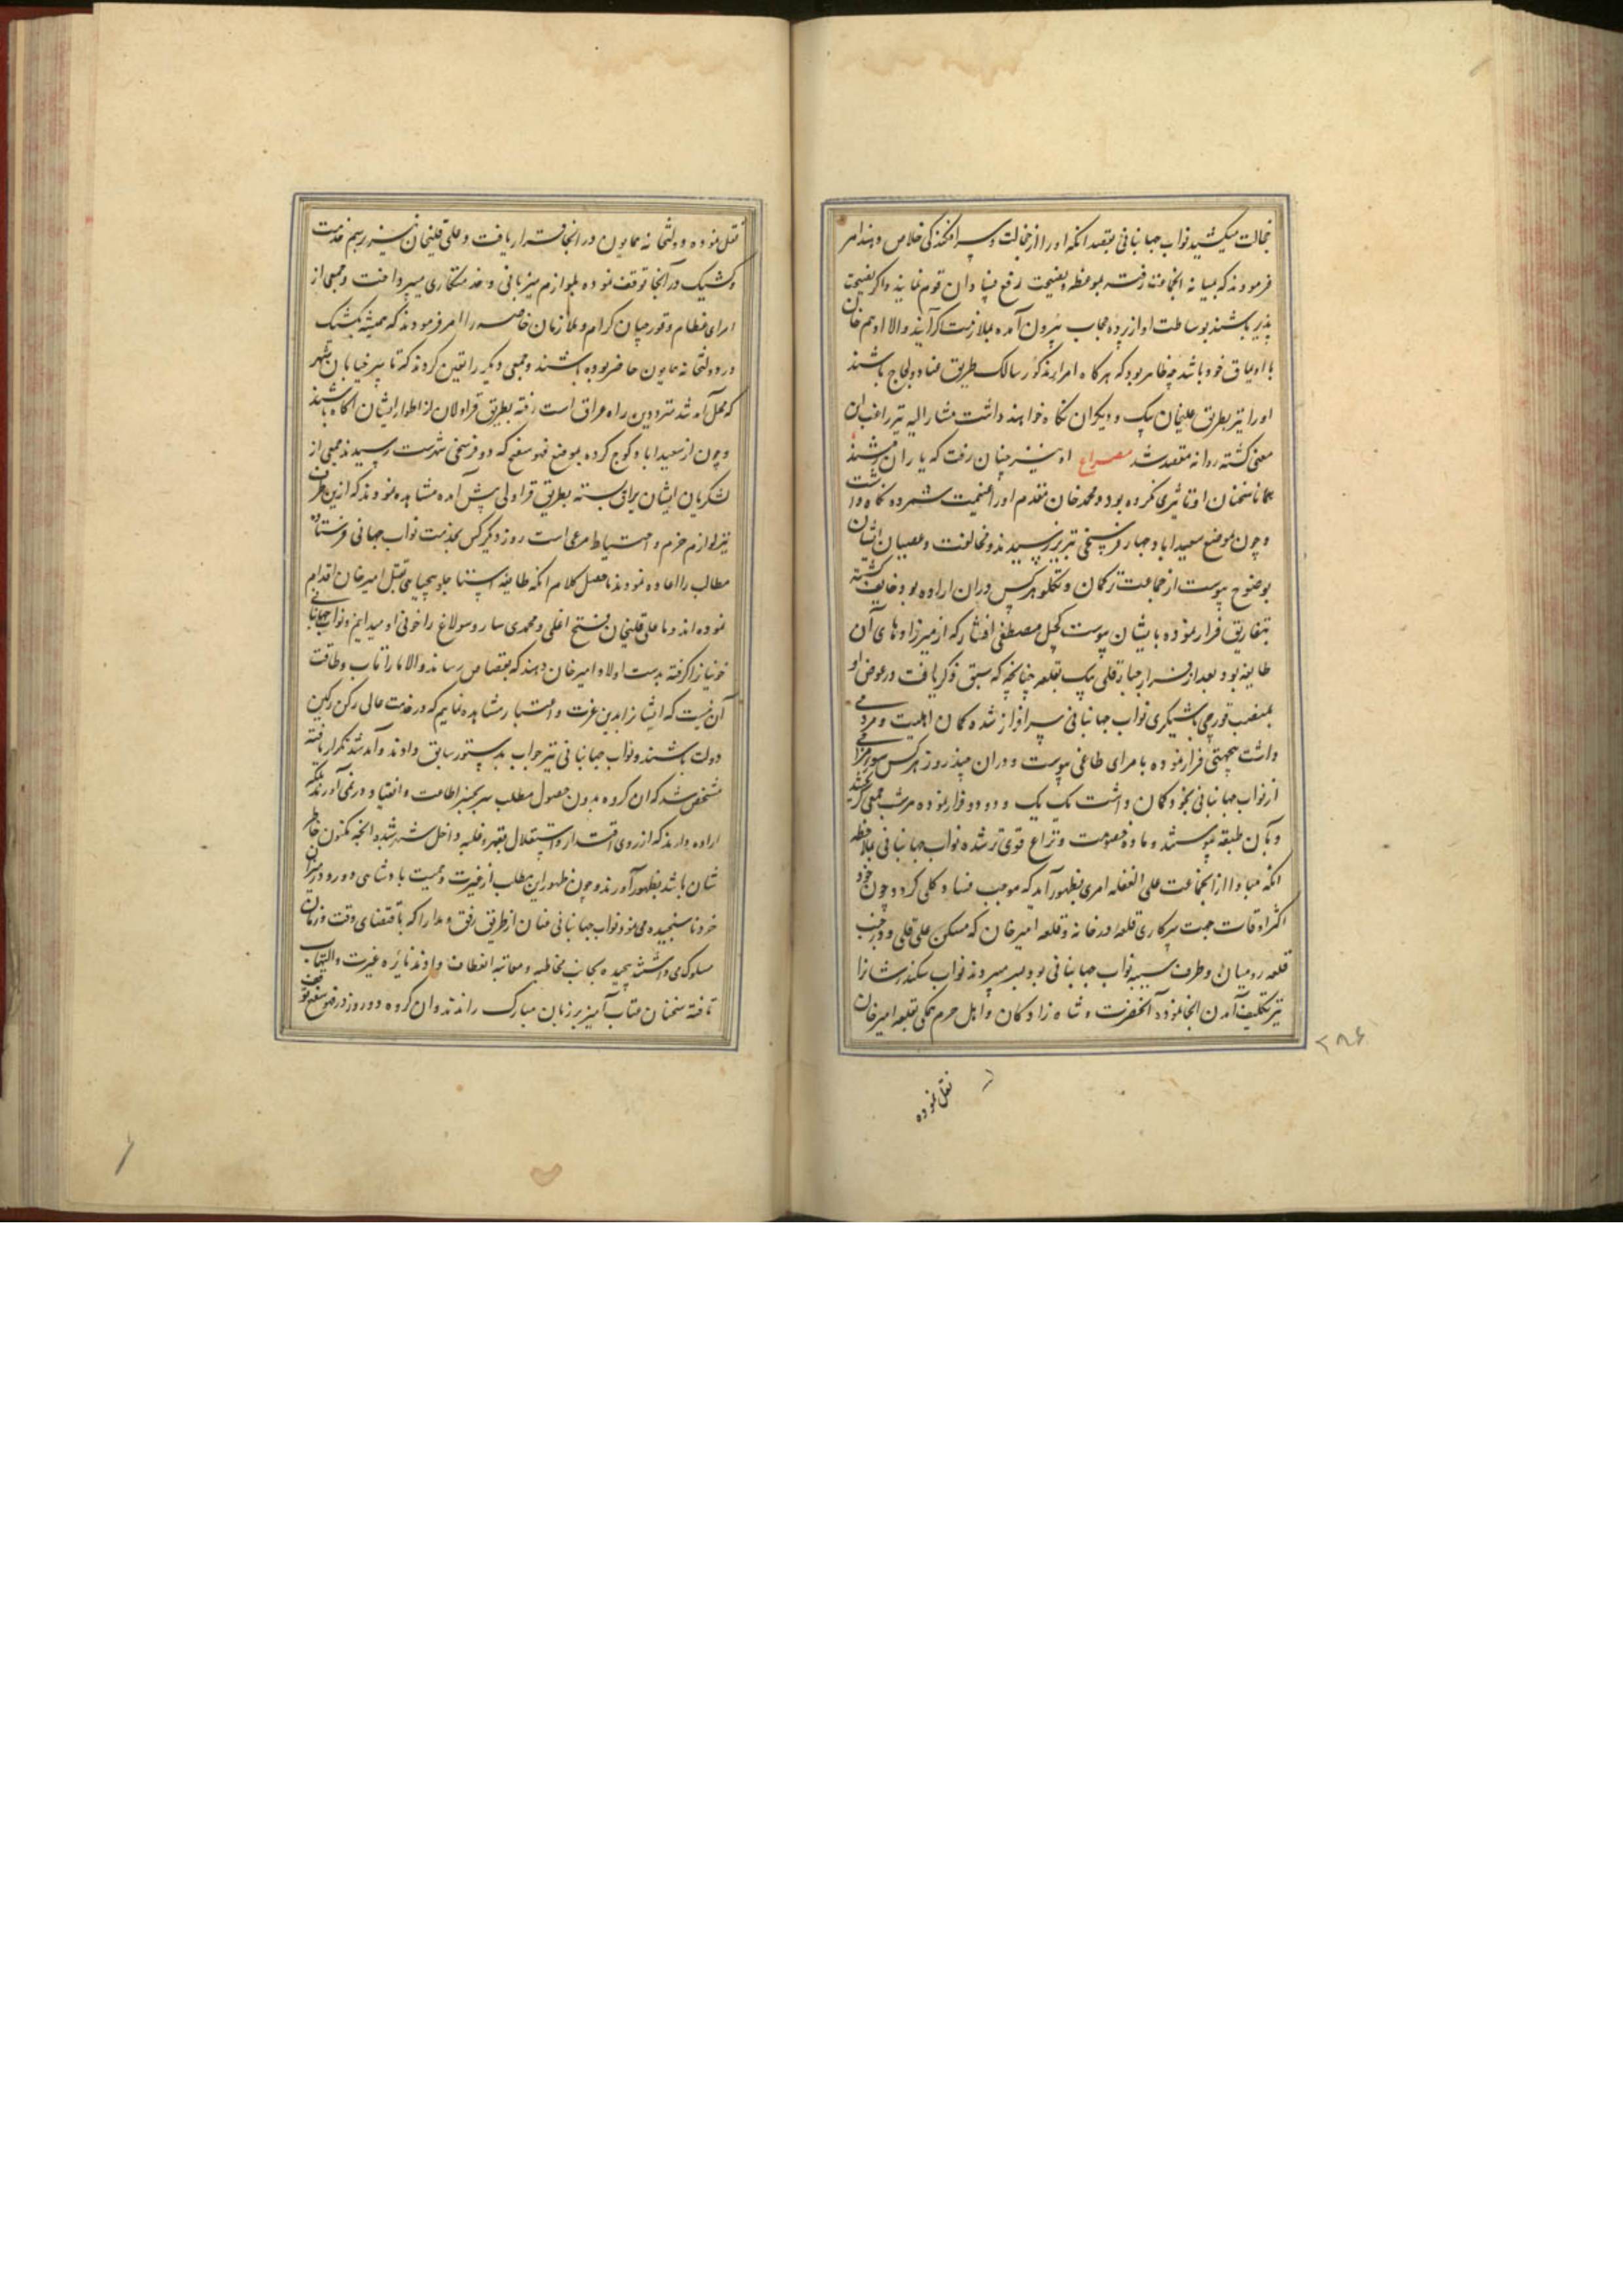 خجالت میکشید نواب جهانبانی بقصد آنکه او را از خجالت و سرافکندگی خلاص دهند امر
فرمودند که بمیانه آنجماعت رفته بموعظه و نصیحت رفع فساد آن قوم نماید و اگر نصیحت
پذیر باشند بوساطت او از پرده حجاب بیرون آمده بملازمت گرایند والا او هم خان
با اویماق خود باشد چه ظاهر بود که هرگاه امراء مذکور سالک طریق فساد و لجاج باشند
او را نیز بطریق علیخان بیک و دیگران نگاه خواهند داشت مشار الیه نیز راغب این
معنی گشته روانه مقصد شد مصراع او نیز چنان رفت که یاران رفتند
همانا سخنان او تاثیری نکرده بود و محمد خان مقدم او را غنیمت شمرده نگاه داشت
و چون بموضع سعیدآباد چهار فرسخی تبریز رسیدند و مخالفت و عصیان ایشان
بوضوح پیوست از جماعت ترکمان و تکلو هرکس در آن اراده بود خایف گشته
بتفاریق فرار نموده بایشان پیوست کچل مصطفی افشار که از میرزادهای آن
طایفه بود بعد از فرار جبار قلی بیک بقلعه چنانچه که سبق ذکر یافت در عوض او
بمنصب قورچی باشیگری نواب جهانبانی سرافراز شده گمان اهلیت و مردمی
داشت بیجهتی فرار نموده بامرای طاغی پیوست و در آن چند روز هر کس سوء مزاجی
از نواب جهانبانی بخود گمان داشت یک یک و دو دو فرار نموده هر شب جمعی گریخته
و بآن طبقه پیوستند و ماده خصومت و نزاع قوی تر شده نواب جهانبانی بملاحظه
آنکه مبادا از آنجماعت علی الغفله امری بظهور آید که موجب فساد کلی گردد و چون خود
اکثر اوقات جهت سرکاری قلعه در خانه و قلعه امیر خان که مسکن علی قلی و در جنب
قلعه رومیان و طرف سیبه نواب جهانبانی بود بسر میبردند نواب سکندر شان را
نیز تکلیف آمدن آنجا نموده آنحضرت و شاه زادگان و اهل حرم همگی بقلعه امیر خان
نقل نموده
۲۸۶
نقل نموده و دولتخانه همایون در آنجا قرار یافت و علی قلیخان نیز برسم خدمت
و کشیک در آنجا توقف نموده بلوازم میزبانی و خدمتکاری میپرداخت و جمعی از
امرای عظام و قورچیان کرام و ملازمان خاصه را امر فرمودند که همیشه بکشیک
در دولتخانه همایون حاضر بوده باشند و جمعی دیگر را تعین کردند که تا سر خیابان شهر
که محل آمد شد مترددین راه عراق است رفته بطریق قراولان از اطوار ایشان آگاه باشند
و چون از سعیدآباد کوچ کرده بموضع فهوسفج که دو فرسخی شهرست رسیدند جمعی از
لشکریان ایشان یراق بسته بطریق قراولی پیش آمده مشاهده نمودند که ازین طرف
نیز لوازم حزم و احتیاط مرعی است روز دیگر کس بخدمت نواب جهانبانی فرستاده
مطالب را اعاده نمودند ماحصل کلام آنکه طایفه استاجلو بیجاهی قتل امیر خان اقدام
نموده اند و ما علی قلیخان فتح اغلی و محمدی ساروسولاغ را خونی او میدانیم و نواب جهانبانی
خونیان را گرفته بدست اولاد امیر خان دهند که بقصاص رسانند والا ما را تاب و طاقت
آن نیست که ایشانرا بدین عزت و اعتبار مشاهده نمایم که در خدمت عالی رکن رکین
دولت باشند و نواب جهانبانی نیز جواب بدستور سابق دادند و آمد شد تکرار یافته
مشخص شد که آن گروه بدون حصول مطلب سر بچنبر اطاعت و انقیاد در نمی آورند بلکه
اراده دارند که از روی اقتدار و استقلال بقهر و غلبه داخل شهر شده آنچه مکنون خاطر
شان باشد بظهور آورند و چون ظهور این مطلب از غیرت و حمیت پادشاهی دور و در میزان
خرد ناسنجیده می نمود نواب جهانبانی عنان از طریق رفق و مدارا که باقتضای وقت و زمان
مسلوک می داشتند پیچیده بجانب مخاطبه و معاتبه انعطاف دادند نایره غیرت والتهاب
یافته سخنان عتاب آمیز بر زبان مبارک راندند و آن گروه دو روز در فهوسفج توقف